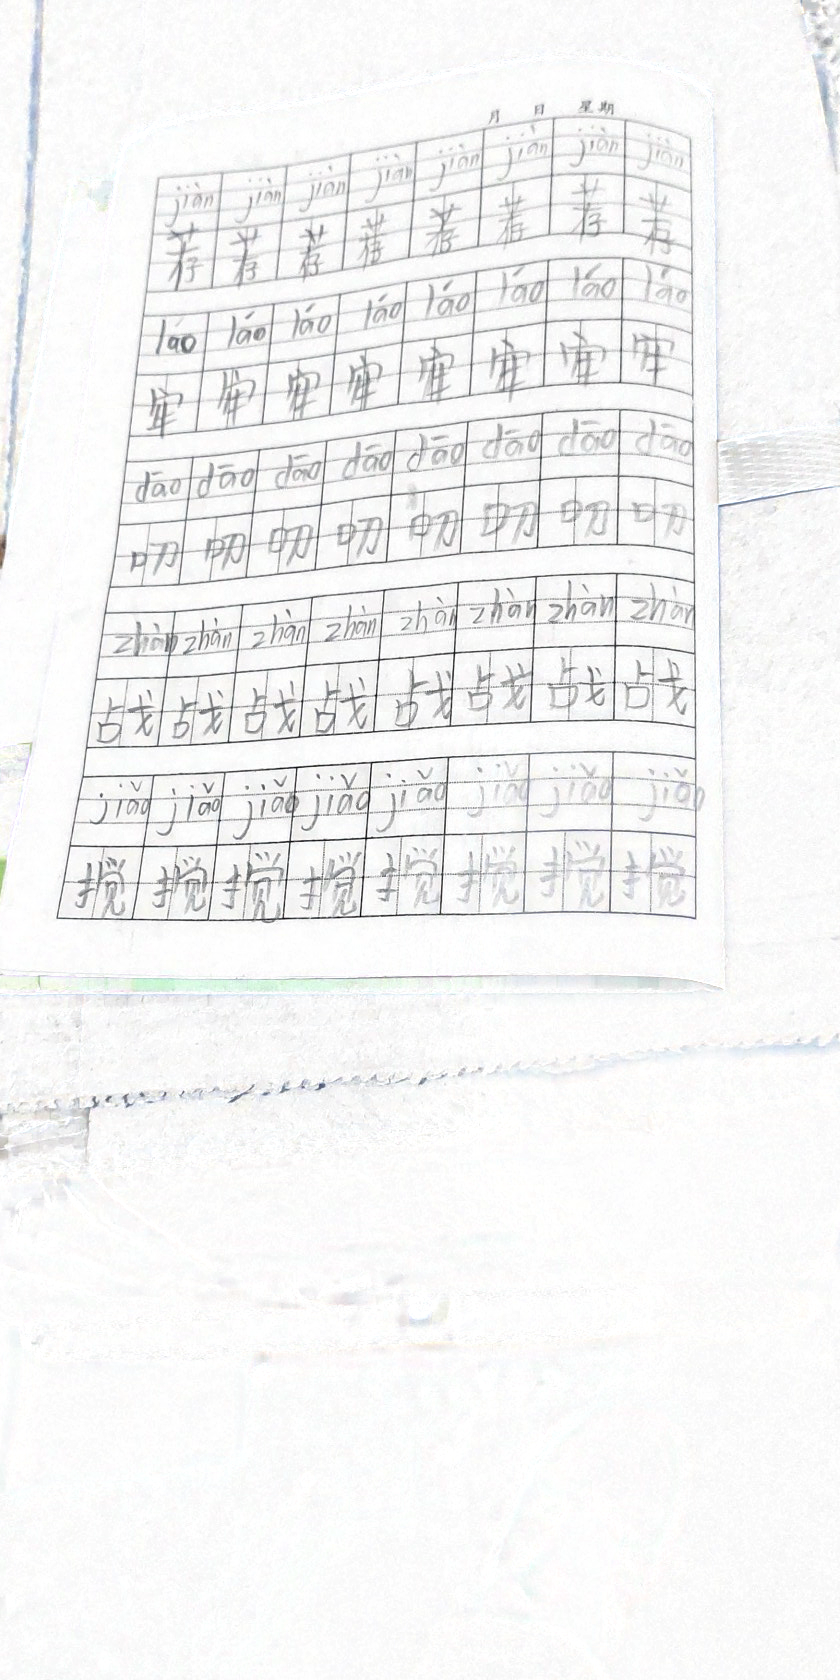 月 日 星期
jiàn jiàn jiàn jiàn jiàn jiàn jiàn jiàn
荐 荐 荐 荐 荐 荐 荐 荐
láo láo láo láo láo láo láo láo
牢 牢 牢 牢 牢 牢 牢 牢
dāo dāo dāo dāo dāo dāo dāo dāo
叨 叨 叨 叨 叨 叨 叨 叨
zhàn zhàn zhàn zhàn zhàn zhàn zhàn zhàn
战 战 战 战 战 战 战 战
jiǎo jiǎo jiǎo jiǎo jiǎo jiǎo jiǎo jiǎo
搅 搅 搅 搅 搅 搅 搅 搅